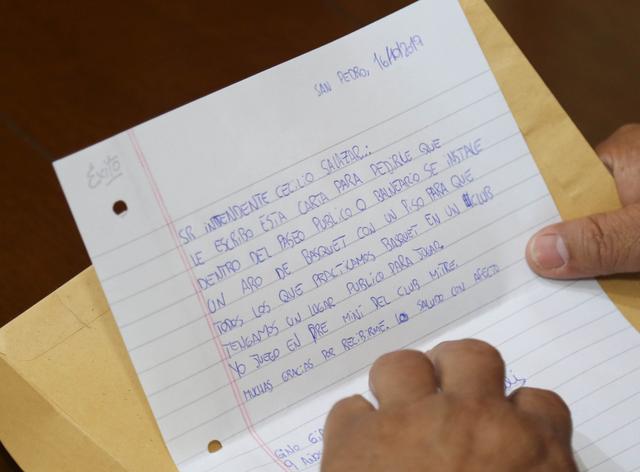 Éxito
SAN PEDRO, 16/10/2019
SR INTENDENTE CECILIO SALAZAR:
LE ESCRIBO ESTA CARTA PARA PEDIRLE QUE
DENTRO DEL PASEO PUBLICO O BALNEARIO SE INSTALE
UN ARO DE BASQUET CON UN PISO PARA QUE
TODOS LOS QUE PRACTICAMOS BASQUET EN UN CLUB
TENGAMOS UN LUGAR PUBLICO PARA JUGAR.
YO JUEGO EN PRE MINI DEL CLUB MITRE.
MUCHAS GRACIAS POR RECIBIRME. LO SALUDO CON AFECTO
GINO
9